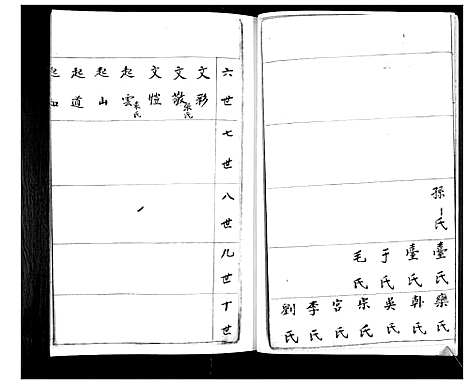 孫氏
臺氏
臺氏
于氏
毛氏
欒氏
韓氏
吳氏
宋氏
宮氏
李氏
劉氏
六世
七世
八世
九世
十世
文彩
文敬 張氏
文愷
起雲 袁氏
起山
起道